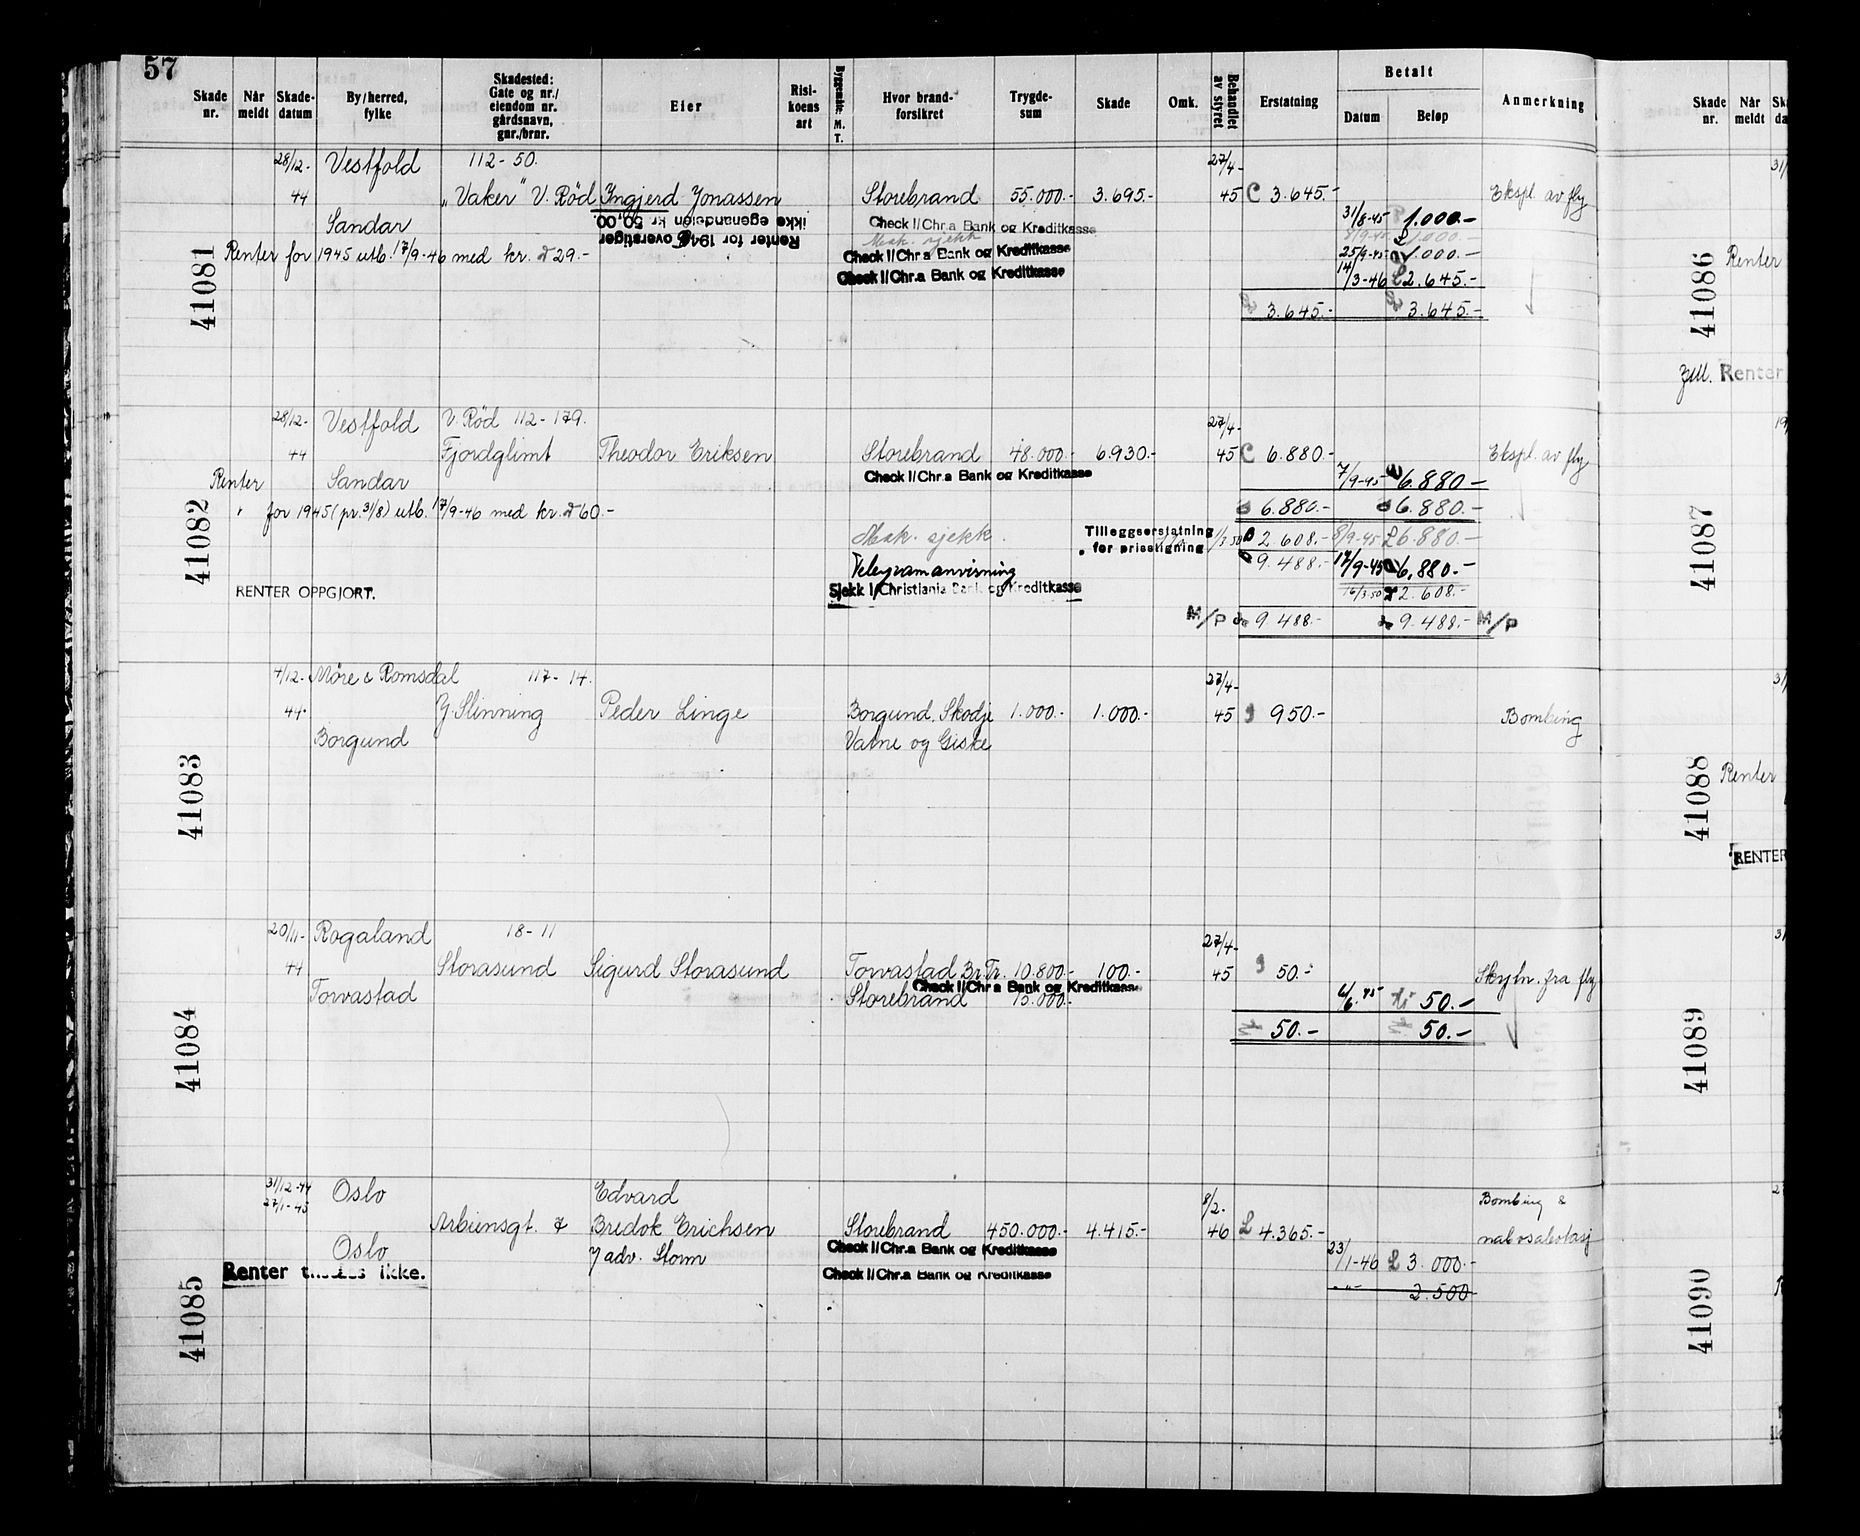 57
Skade nr.
Når meldt
Skade-datum
By/herred, fylke
Skadested: Gate og nr./ eiendom nr. gårdsnavn, gnr./brnr.
Eier
Risi-koens art
Byggemåte: M. T.
Hvor brand-forsikret
Trygde-sum
Skade
Omk.
Behandlet av styret
Erstatning
Betalt
Datum
Beløp
Anmerkning
Skade nr.
Når meldt
41081
28/12- Vestfold 112-50. 27/4-
44 „Vaker" V. Rød Yngjerd Jonassen Storebrand 55.000.- 3.695.- 45 C 3.645.- Ekspl. av fly
Sandar
Renter for 1946 overstiger
ikke egenandelen kr. 50,00.
Check I/Chr.a Bank og Kreditkasse
31/8-45 1.000.-
Mak. sjekk
Renter for 1945 utb. 17/9-46 med kr. 29.-
Check I/Chr.a Bank og Kreditkasse
25/9-45 1.000.-
Check I/Chr.a Bank og Kreditkasse
14/3-46 2.645.-
3.645.- 3.645.-
41082
28/12- Vestfold V. Rød 112-179. 27/4-
44 Fjordglimt Theodor Eriksen Storebrand 48.000.- 6.930.- 45 C 6.880.- Ekspl. av fly
Renter Sandar Check I/Chr.a Bank og Kreditkasse 7/9-45 6.880.-
" for 1945 (pr. 31/8) utb. 17/9-46 med kr. 60.- 6.880.- 6.880.-
Mak. sjekk. Tilleggserstatning for prisstigning 1/3.50 2.608.- 8/9-45 6.880.-
Telegramanvisning 9.488.- 17/9-45 6.880.-
RENTER OPPGJORT. Sjekk I/Christiania Bank og Kreditkasse 16/3.50 2.608.-
M/P 9.488.- 9.488.- M/P
41083
4/12- Møre & Romsdal 117-14. 27/4-
44. G. Slinning Peder Linge Borgund, Skodje 1.000.- 1.000.- 45 950.- Bombing
Borgund Vatne og Giske
41084
20/11- Rogaland 18-11 27/4-
44 Storasund Sigurd Storasund Torvastad Br.Tr. 10.800.- 100.- 45 50.- Skytn. fra fly
Check I/Chr.a Bank og Kreditkasse
Torvastad Storebrand 15.000.- 6/6.45 50.-
50.- 50.-
41085
31/12-44 Oslo Edvard 8/2- Bombing &
27/1-45
Arbiensgt. 7 Bredok Erichsen Storebrand 450.000.- 4.415.- 46 £ 4.365.-
Oslo v/ adv. Storm Check I/Chr.a Bank og Kreditkasse 23/1-46 £ 3.000.-
Renter ikke. Check I/Chr.a Bank og Kreditkasse
-"- 2.500
41086
Renter
Renter
41087
41088
Renter
RENTER
41089
41090